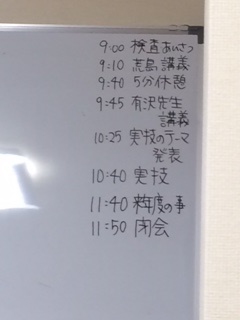 9:00 検査あいさつ
9:10 志島講義
9:40 5分休憩
9:45 有沢先生
講義
10:25 実技のテーマ
発表
10:40 実技
11:40 来年度の事
11:50 閉会